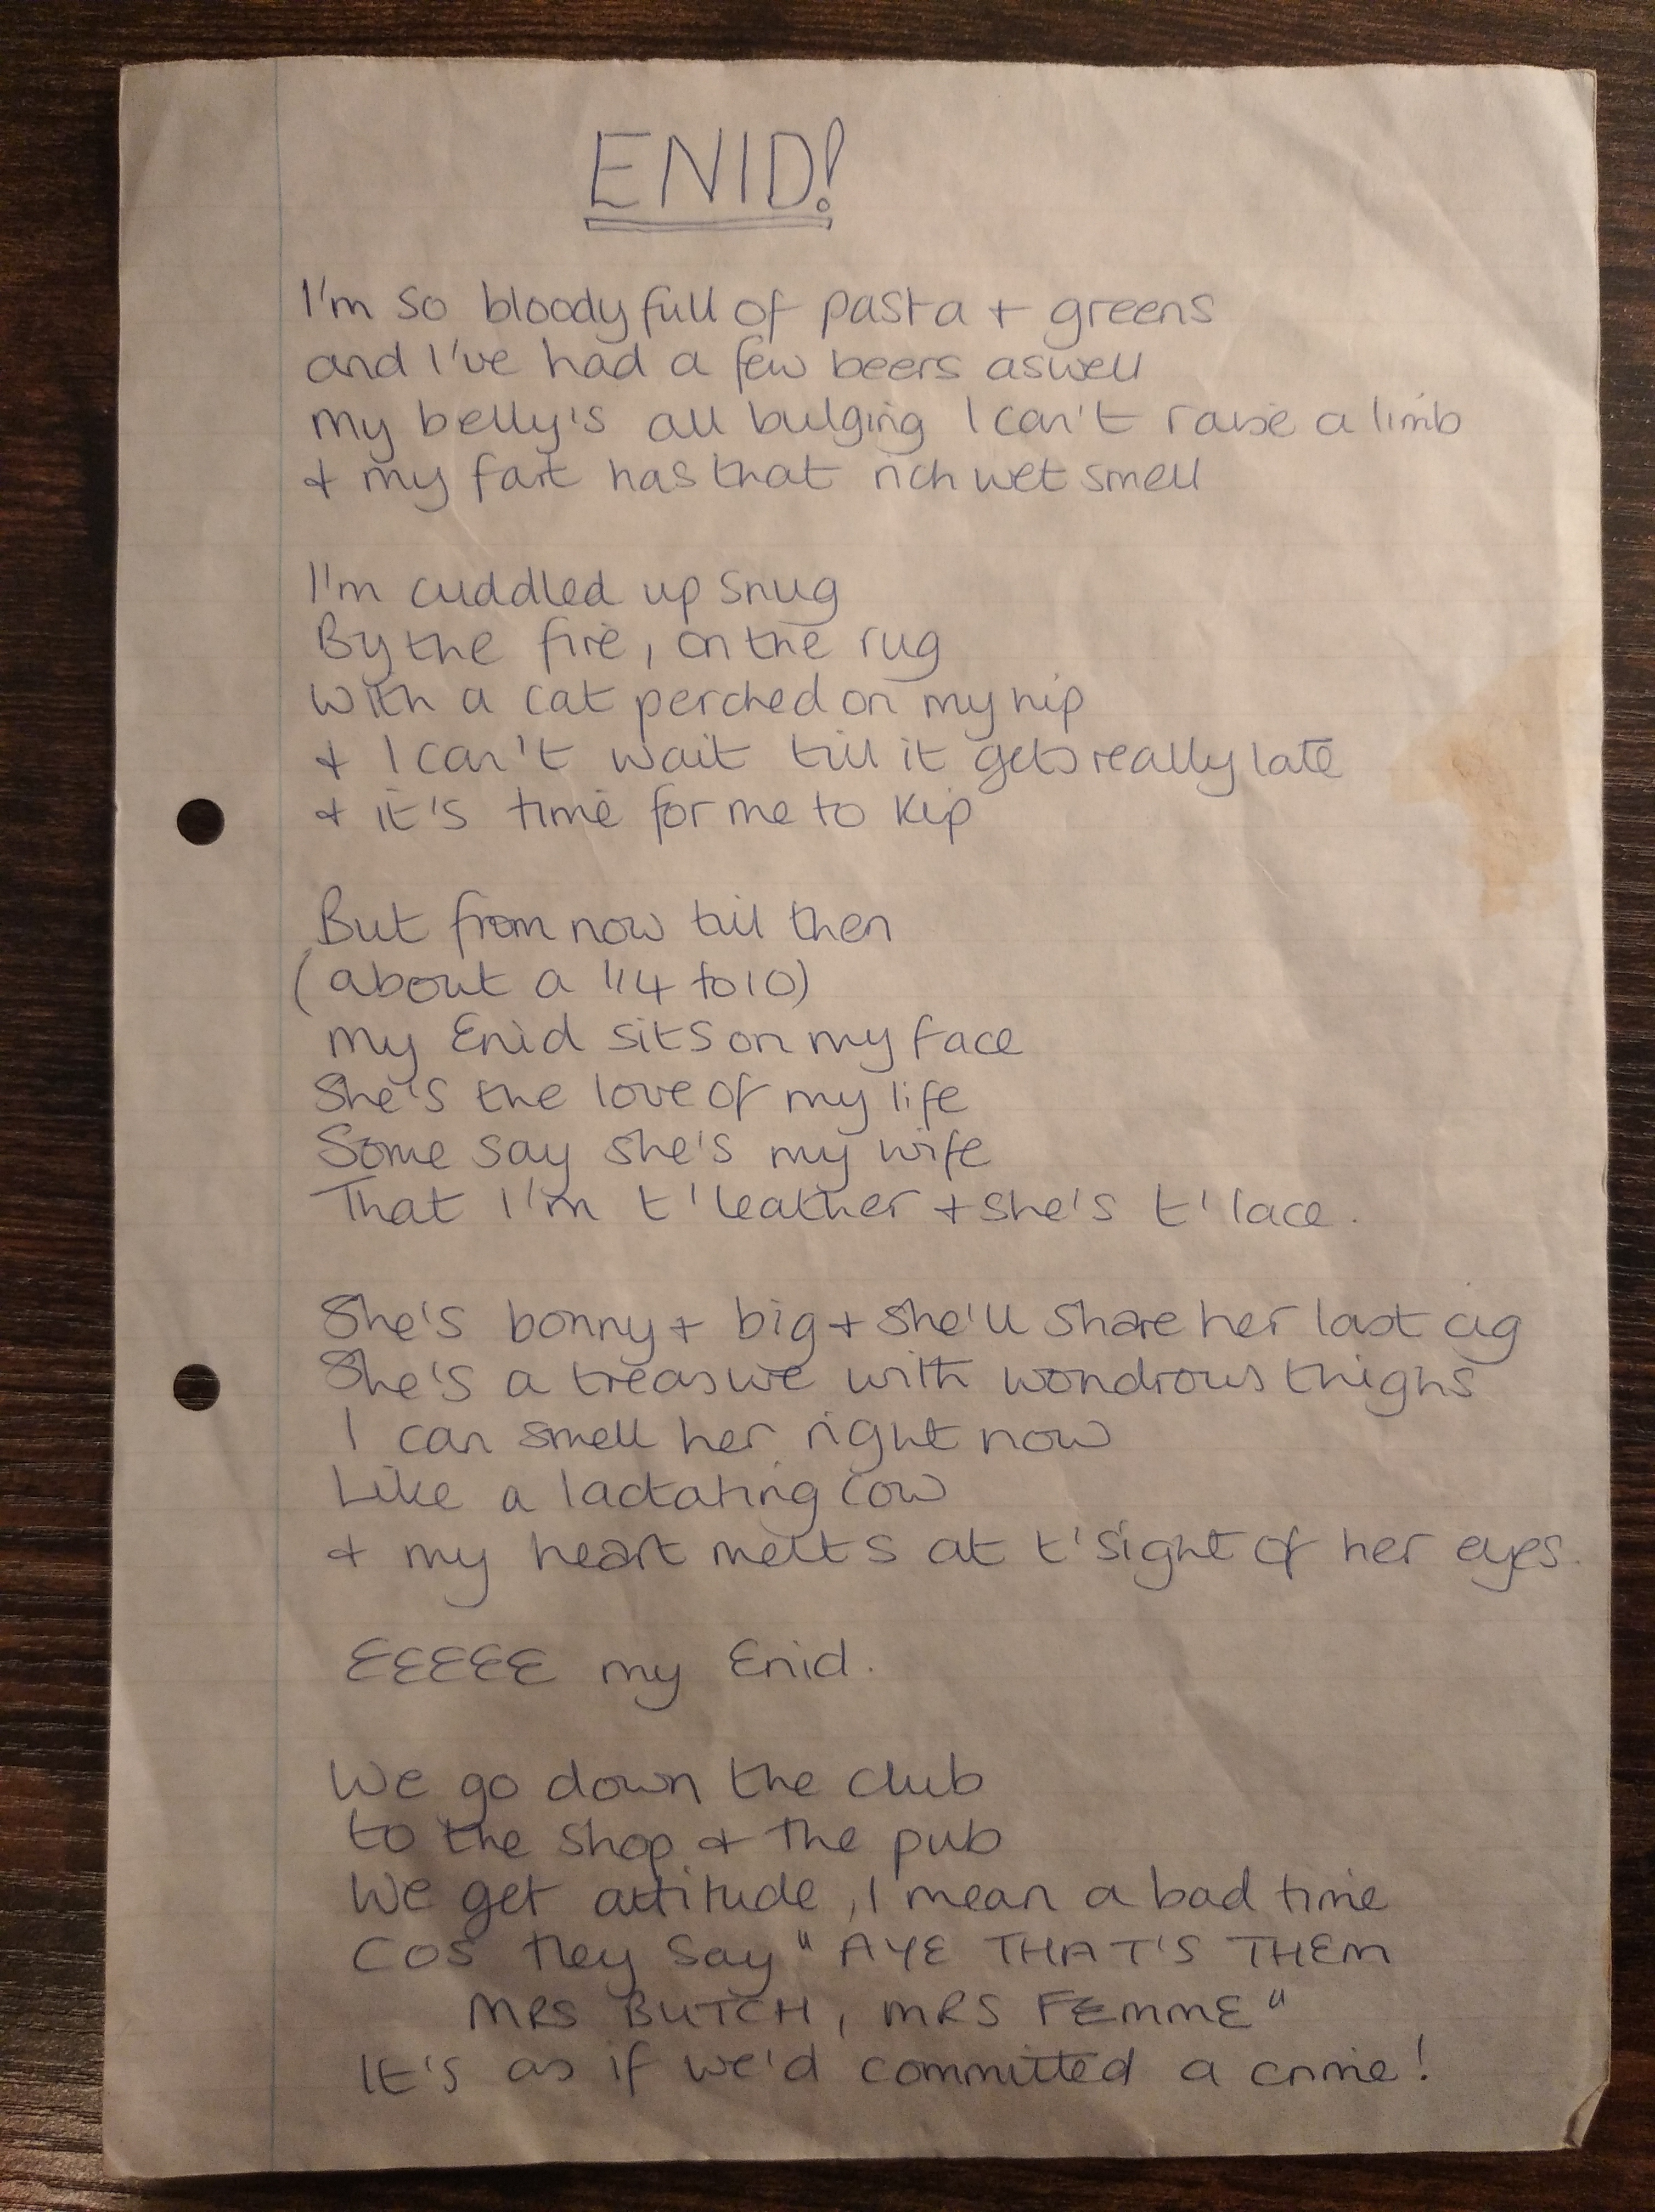 ENID!
I'm so bloody full of pasta + greens
and I've had a few beers aswell
my belly's all bulging I can't raise a limb
+ my fart has that rich wet smell
I'm cuddled up snug
By the fire, on the rug
with a cat perched on my hip
+ I can't wait till it gets really late
+ it's time for me to kip
But from now till then
(about a 1/4 to 10)
my Enid sits on my face
She's the love of my life
Some say she's my wife
That I'm t'leather + she's t'lace.
She's bonny + big + she'll share her last cig
She's a treasure with wondrous thighs
I can smell her right now
Like a lactating cow
+ my heart melts at t'sight of her eyes.
EEEEE my Enid.
We go down the club
to the shop + the pub
We get attitude, I mean a bad time
Cos they say "AYE THAT'S THEM
MRS BUTCH, MRS FEMME"
It's as if we'd committed a crime!